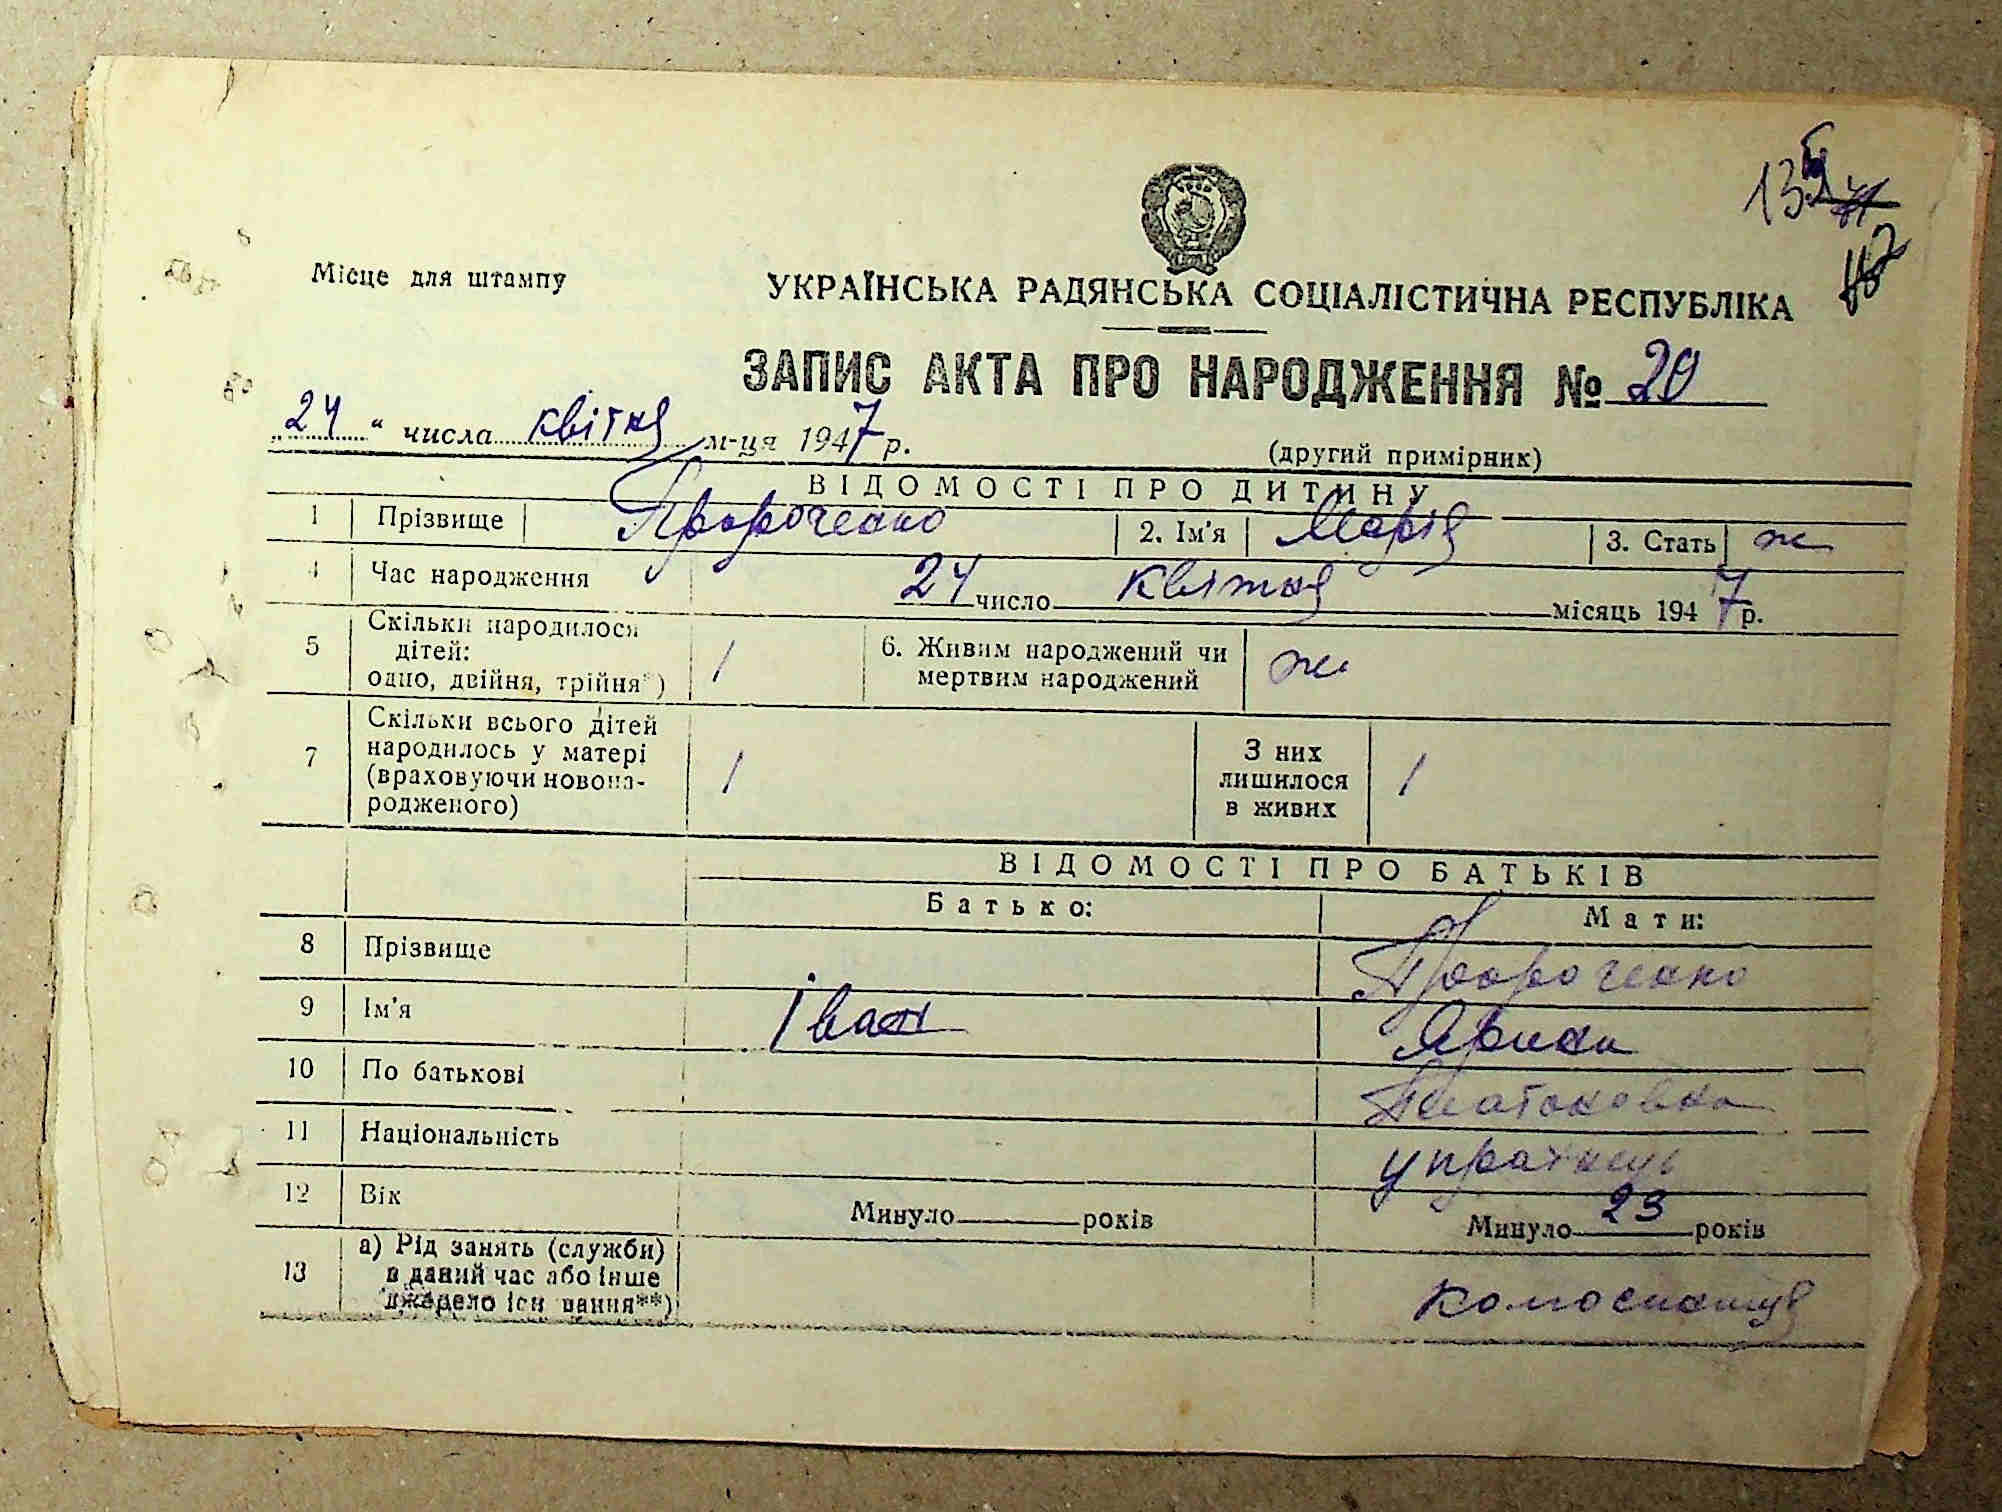 Місце для штампу
УКРАЇНСЬКА РАДЯНСЬКА СОЦІАЛІСТИЧНА РЕСПУБЛІКА
ЗАПИС АКТА ПРО НАРОДЖЕННЯ № 20
„24“ числа квітня м-ця 1947 р.
(другий примірник)
ВІДОМОСТІ ПРО ДИТИНУ
1 Прізвище Пророченко 2. Ім'я Марія 3. Стать ж
4 Час народження 24 число квітня місяць 1947 р.
5 Скільки народилося
дітей:
одно, двійня, трійня*) 1
6. Живим народжений чи
мертвим народжений ж
7 Скільки всього дітей
народилось у матері
(враховуючи новона-
родженого) 1
З них
лишилося
в живих 1
ВІДОМОСТІ ПРО БАТЬКІВ
Батько: Мати:
8 Прізвище Пророченко
9 Ім'я Іван
10 По батькові
11 Національність
12 Вік Минуло років Минуло 23 років
13 а) Рід занять (служби)
в даний час або інше
джерело існ вання**)